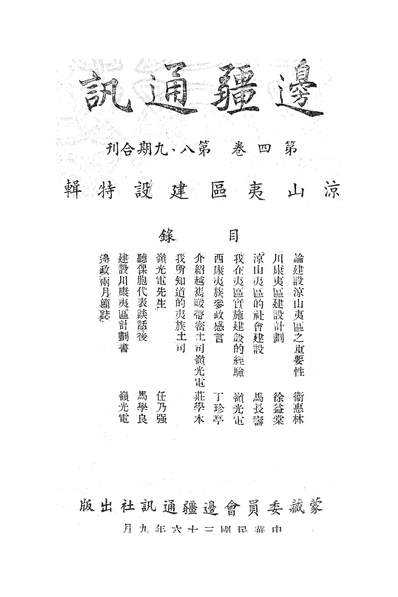 邊疆通訊
第四卷 第八·九期合刊
涼山夷區建設特輯
目錄
論建設涼山夷區之重要性 衛惠林
川康夷區建設計劃 徐益棠
涼山夷區的社會建設 馬長壽
我在夷區實施建設的經驗 嶺光電
西康夷族參政感言 丁珍亭
介紹越嶲煖帶密土司嶺光電 莊學本
我所知道的夷族土司
嶺光電先生 任乃强
聽倮胞代表談話後 馬學良
建設川康夷區計劃書 嶺光電
政兩月簡誌
蒙藏委員會邊疆通訊社出版
中華民國三十六年九月